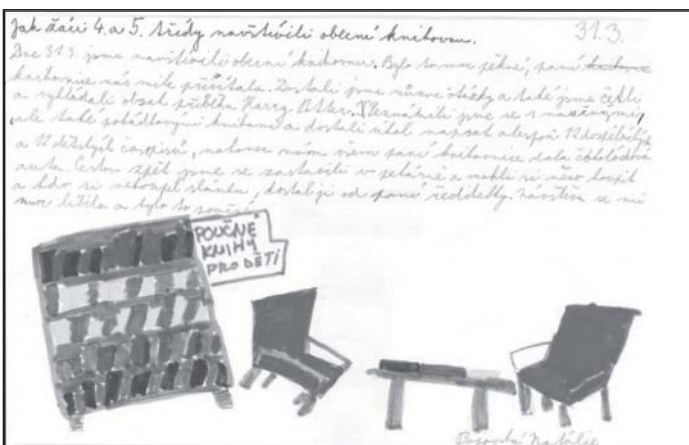 Jak žáci 4. a 5. třídy navštívili obecní knihovnu. 31.3.
Dne 31.3. jsme navštívili obecní knihovnu. Bylo to moc pěkné, paní
knihovnice nás mile přivítala. Dostali jsme různé otázky a také jsme četli
a vykládali obsah příběhu Harry Potter. Seznámili jsme se s naučnými,
ale také pohádkovými knihami a dostali úkol napsat alespoň 12 dospělých
a 12 dětských časopisů, nakonec nám všem paní knihovnice dala čokoládová
auta. Cestou zpět jsme se zastavili v a mohli si něco koupit
a kdo si nekoupil , dostal ji od paní ředitelky. Návštěva se mi
moc líbila a bylo to poučné.
POUČNÉ
KNIHY
PRO DĚTI
Natálie